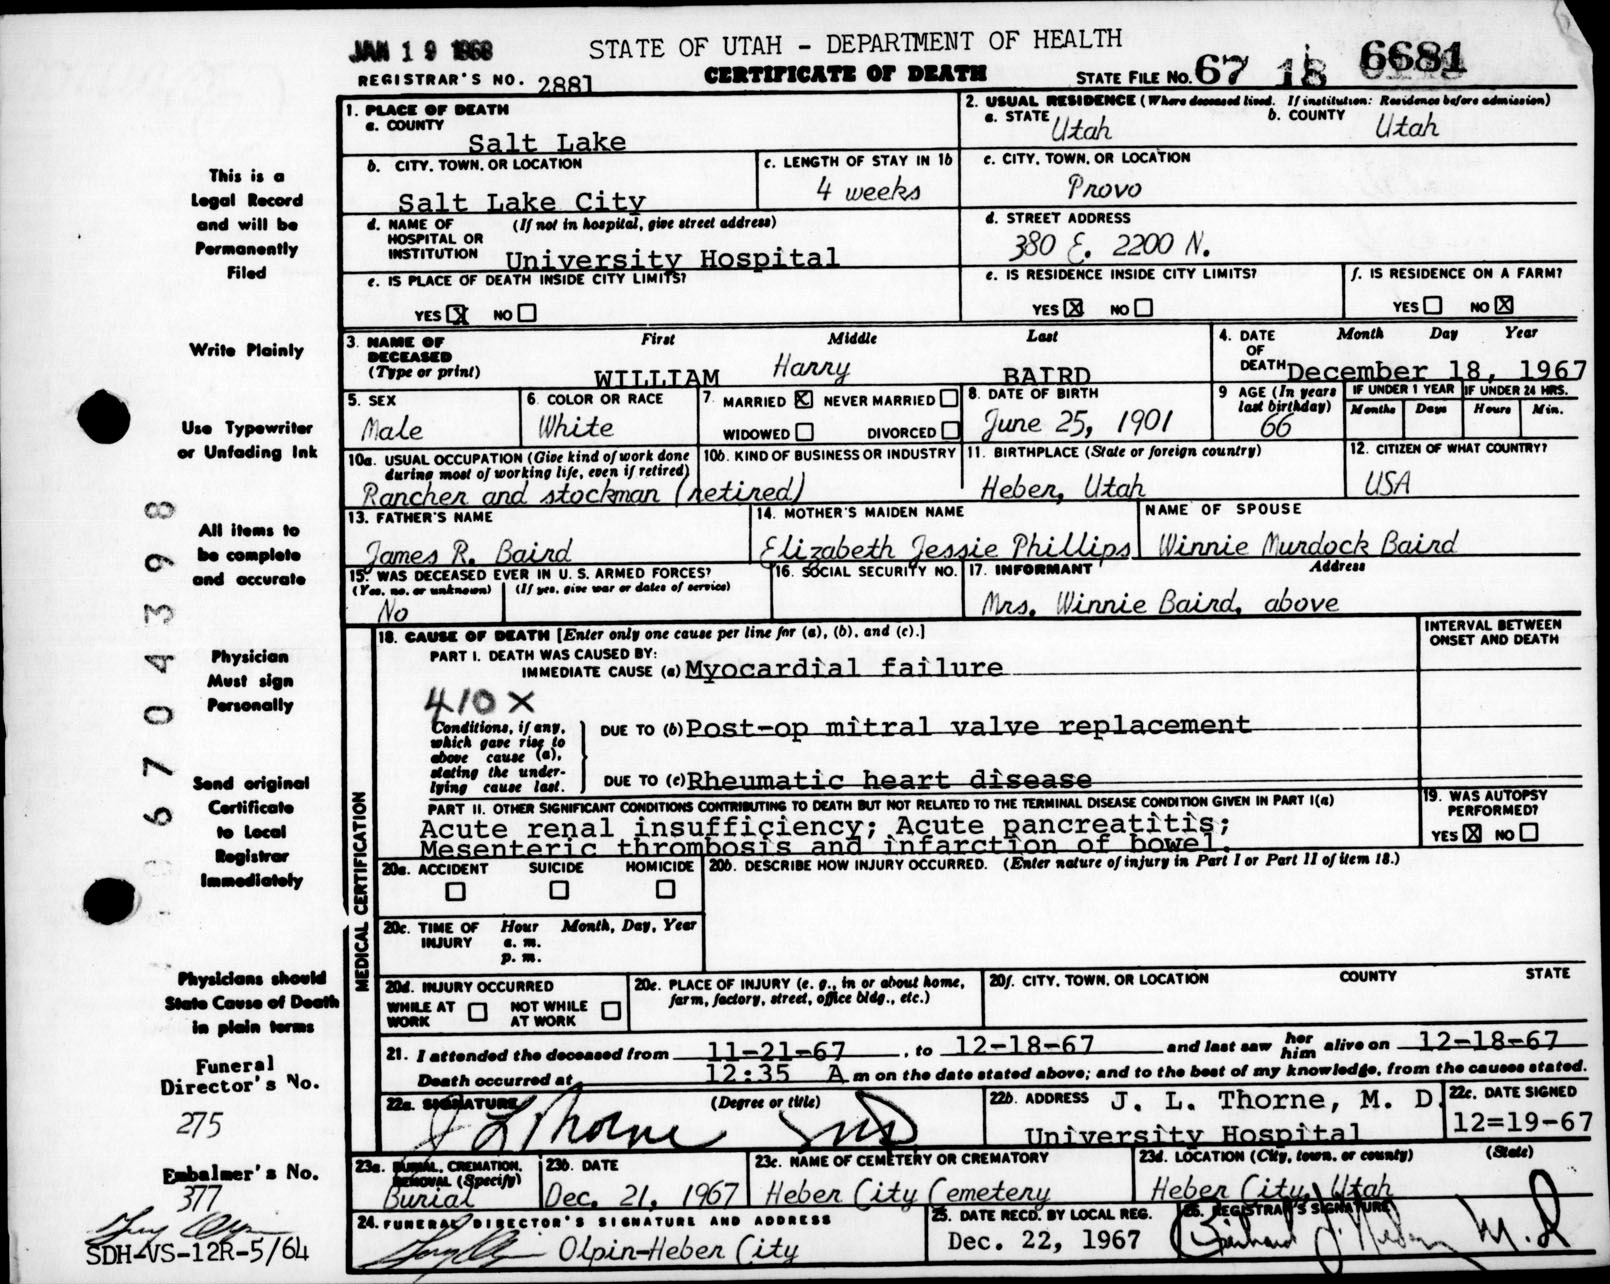 JAN 19 1968
STATE OF UTAH - DEPARTMENT OF HEALTH
REGISTRAR'S NO. 2881
CERTIFICATE OF DEATH
STATE FILE NO. 67 18 6681
1. PLACE OF DEATH
a. COUNTY
Salt Lake
2. USUAL RESIDENCE (Where deceased lived. If institution: Residence before admission)
a. STATE Utah
b. COUNTY Utah
b. CITY, TOWN, OR LOCATION
Salt Lake City
c. LENGTH OF STAY IN 1b
4 weeks
c. CITY, TOWN, OR LOCATION
Provo
d. NAME OF HOSPITAL OR INSTITUTION
(If not in hospital, give street address)
University Hospital
d. STREET ADDRESS
380 E. 2200 N.
e. IS PLACE OF DEATH INSIDE CITY LIMITS?
YES X NO
e. IS RESIDENCE INSIDE CITY LIMITS?
YES X NO
f. IS RESIDENCE ON A FARM?
YES NO X
3. NAME OF DECEASED
(Type or print)
First Middle Last
WILLIAM Harry BAIRD
4. DATE OF DEATH
Month Day Year
December 18, 1967
5. SEX
Male
6. COLOR OR RACE
White
7 MARRIED X NEVER MARRIED
WIDOWED DIVORCED
8. DATE OF BIRTH
June 25, 1901
9 AGE (In years last birthday)
66
IF UNDER 1 YEAR
Months Days
IF UNDER 24 HRS.
Hours Min.
10a. USUAL OCCUPATION (Give kind of work done during most of working life, even if retired)
Rancher and stockman (retired)
10b. KIND OF BUSINESS OR INDUSTRY
11. BIRTHPLACE (State or foreign country)
Heber, Utah
12. CITIZEN OF WHAT COUNTRY?
USA
13. FATHER'S NAME
James R. Baird
14. MOTHER'S MAIDEN NAME
Elizabeth Jessie Phillips
NAME OF SPOUSE
Winnie Murdock Baird
15. WAS DECEASED EVER IN U. S. ARMED FORCES?
(Yes, no, or unknown) (If yes, give war or dates of service)
No
16. SOCIAL SECURITY NO.
17. INFORMANT Address
Mrs. Winnie Baird, above
MEDICAL CERTIFICATION
18. CAUSE OF DEATH [Enter only one cause per line for (a), (b), and (c).]
INTERVAL BETWEEN ONSET AND DEATH
PART I. DEATH WAS CAUSED BY:
IMMEDIATE CAUSE (a) Myocardial failure
410 X
Conditions, if any, which gave rise to above cause (a), stating the underlying cause last.
DUE TO (b) Post-op mitral valve replacement
DUE TO (c) Rheumatic heart disease
PART II. OTHER SIGNIFICANT CONDITIONS CONTRIBUTING TO DEATH BUT NOT RELATED TO THE TERMINAL DISEASE CONDITION GIVEN IN PART I(a)
Acute renal insufficiency; Acute pancreatitis;
Mesenteric thrombosis and infarction of bowel.
19. WAS AUTOPSY PERFORMED?
YES X NO
20a. ACCIDENT SUICIDE HOMICIDE
20b. DESCRIBE HOW INJURY OCCURRED. (Enter nature of injury in Part I or Part II of item 18.)
20c. TIME OF INJURY
Hour Month, Day, Year
a. m.
p. m.
20d. INJURY OCCURRED
WHILE AT WORK NOT WHILE AT WORK
20e. PLACE OF INJURY (e. g., in or about home, farm, factory, street, office bldg., etc.)
20f. CITY, TOWN, OR LOCATION COUNTY STATE
21. I attended the deceased from 11-21-67, to 12-18-67 and last saw her him alive on 12-18-67
Death occurred at 12:35 A m on the date stated above; and to the best of my knowledge, from the causes stated.
22a. SIGNATURE (Degree or title)
J L Thorne MD
22b. ADDRESS J. L. Thorne, M. D.
University Hospital
22c. DATE SIGNED
12=19-67
23a. BURIAL, CREMATION, REMOVAL (Specify)
Burial
23b. DATE
Dec. 21, 1967
23c. NAME OF CEMETERY OR CREMATORY
Heber City Cemetery
23d. LOCATION (City, town, or county) (State)
Heber City, Utah
24. FUNERAL DIRECTOR'S SIGNATURE AND ADDRESS
Olpin-Heber City
25. DATE RECD. BY LOCAL REG.
Dec. 22, 1967
26. REGISTRAR'S SIGNATURE
M.D.
This is a
Legal Record
and will be
Permanently
Filed
Write Plainly
Use Typewriter
or Unfading Ink
All items to
be complete
and accurate
Physician
Must sign
Personally
Send original
Certificate
to Local
Registrar
Immediately
Physicians should
State Cause of Death
in plain terms
Funeral
Director's No.
275
Embalmer's No.
377
SDH-VS-12R-5/64